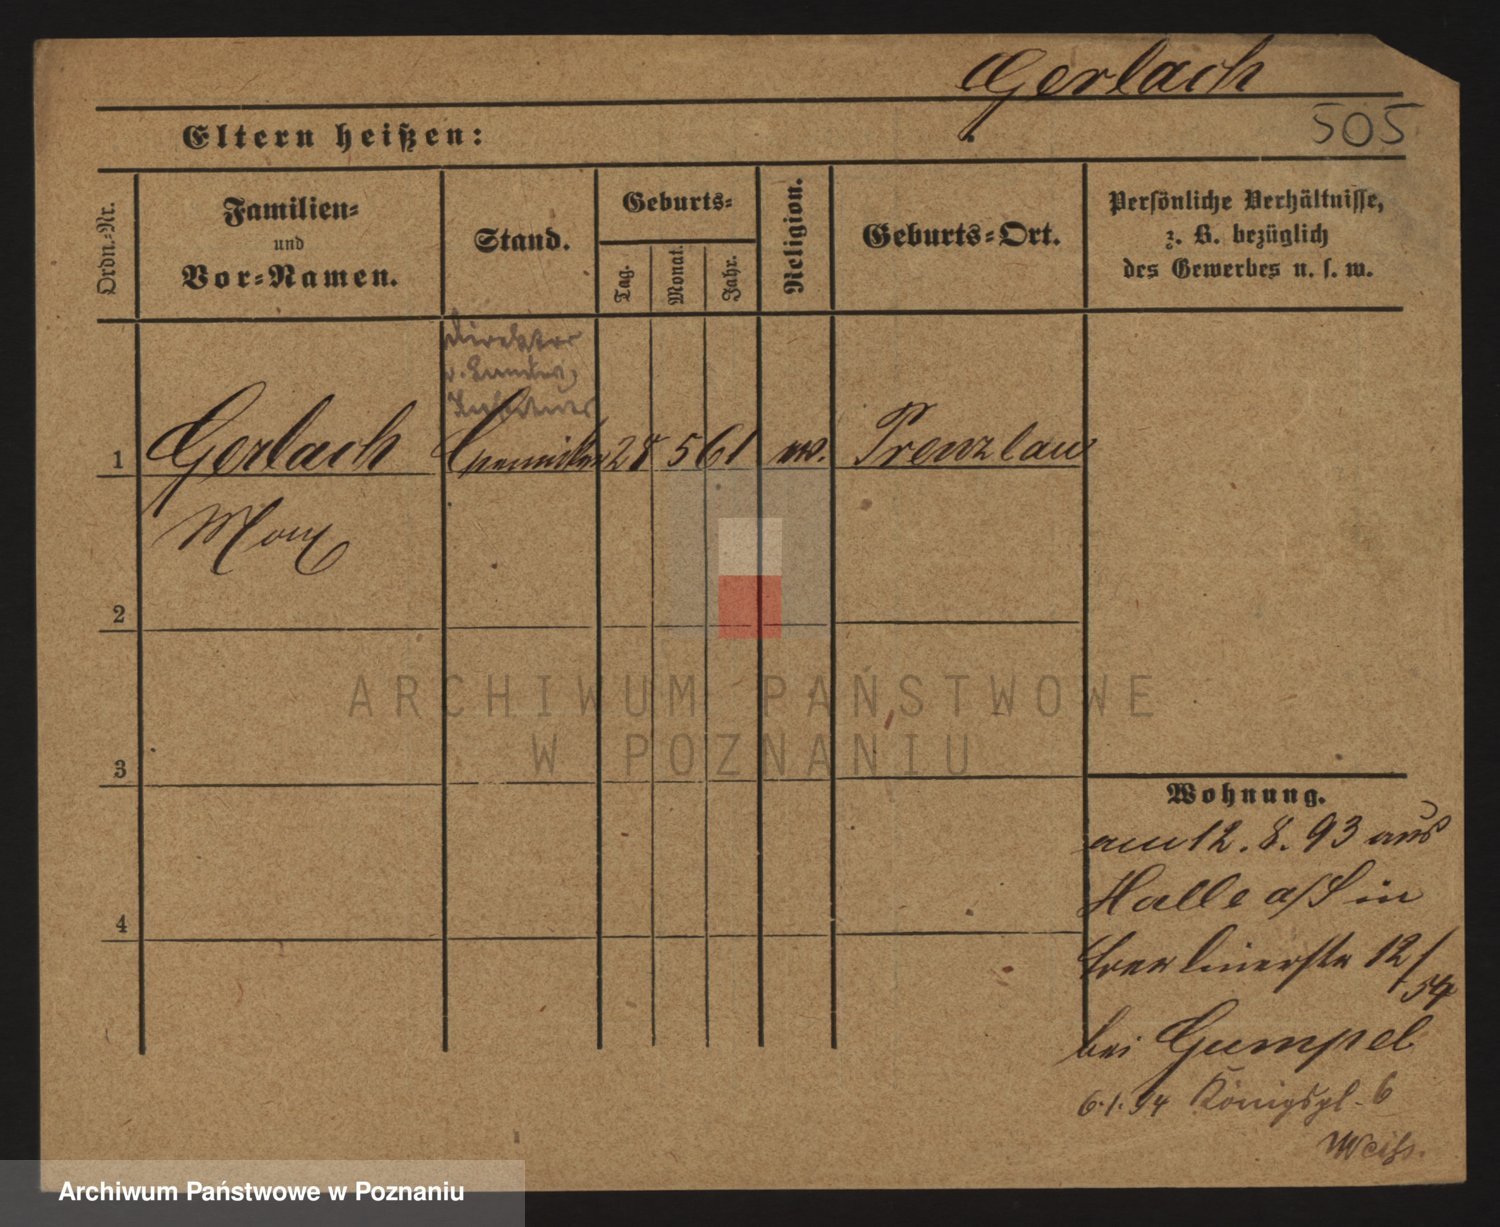 Gerlach
505
Eltern heißen:
Ordn.-Nr.
Familien-
und
Vor-Namen.
Stand.
Geburts-
Tag.
Monat.
Jahr.
Religion.
Geburts-Ort.
Persönliche Verhältnisse,
z. B. bezüglich
des Gewerbes u. s. w.
Direktor
1 Gerlach Chemiker 28 5 61 ev. Prenzlau
Max
2
3
4
Wohnung.
am 12. 8. 93 aus
Halle a/S in
12/54
bei Gumpel
6.1.94 Königspl. 6
Weiß.
ARCHIWUM PAŃSTWOWE
W POZNANIU
Archiwum Państwowe w Poznaniu